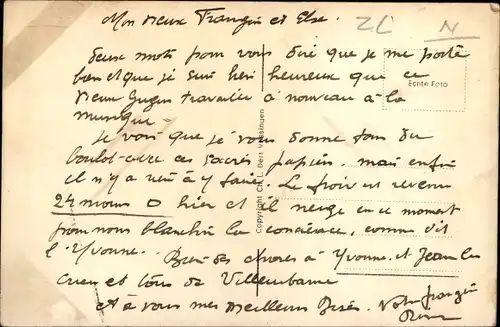 Mon vieux Frangin et Else.
deux mots pour vous dire que je me porte
bien et que je suis heureux que ce
vieux travaille à nouveau à la
musique -
Je vois que je vous donne tous du
boulot avec ces sacrés papiers. mais enfin
il n'y a rien à y faire. Le froid est revenu
24 moins 0 hier et il neige en ce moment
pour nous blanchir la conscience, comme dit
l'Yvonne. à Yvonne et Jean les
et tous de Villeurbanne
et à vous mes meilleurs Bisés. Votre frangin
ZL
N
Echte Foto
Copyright Ch. L.